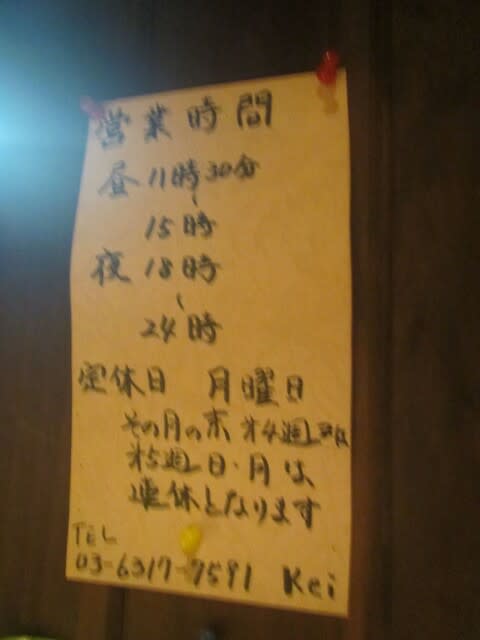 営業時間
昼 11時30分
〜
15時
夜 18時
〜
24時
定休日 月曜日
その月の末 第4週
第5週 日・月は
連休となります
TEL
03-6317-7591 Kei